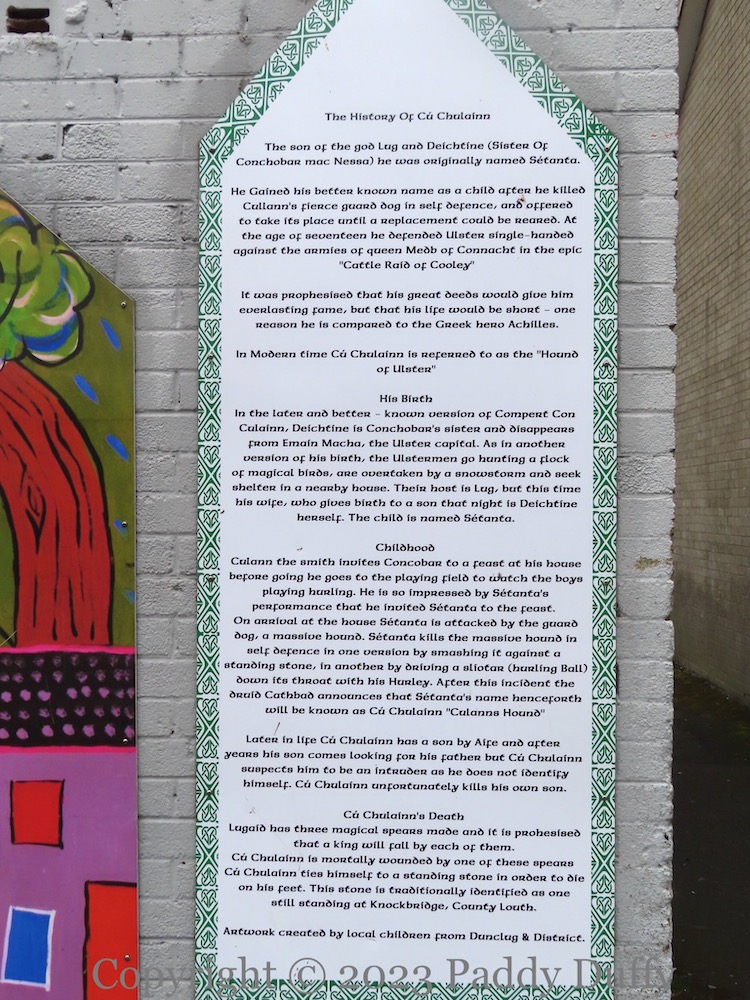 The History Of Cú Chulainn
The son of the god Lug and Deichtine (Sister Of
Conchobar mac Nessa) he was originally named Sétanta.
He Gained his better known name as a child after he killed
Cullann's fierce guard dog in self defence, and offered
to take its place until a replacement could be reared. At
the age of seventeen he defended Ulster single-handed
against the armies of queen Medb of Connacht in the epic
"Cattle Raid of Cooley"
It was prophesised that his great deeds would give him
everlasting fame, but that his life would be short - one
reason he is compared to the Greek hero Achilles.
In Modern time Cú Chulainn is referred to as the "Hound
of Ulster"
His Birth
In the later and better - known version of Compert Con
Culainn, Deichtine is Conchobar's sister and disappears
from Emain Macha, the Ulster capital. As in another
version of his birth, the Ulstermen go hunting a flock
of magical birds, are overtaken by a snowstorm and seek
shelter in a nearby house. Their host is Lug, but this time
his wife, who gives birth to a son that night is Deichtine
herself. The child is named Sétanta.
Childhood
Culann the smith invites Concobar to a feast at his house
before going he goes to the playing field to watch the boys
playing hurling. He is so impressed by Sétanta's
performance that he invited Sétanta to the feast.
On arrival at the house Sétanta is attacked by the guard
dog, a massive hound. Sétanta kills the massive hound in
self defence in one version by smashing it against a
standing stone, in another by driving a sliotar (hurling Ball)
down its throat with his Hurley. After this incident the
druid Cathbad announces that Sétanta's name henceforth
will be known as Cú Chulainn "Culanns Hound"
Later in life Cú Chulainn has a son by Aife and after
years his son comes looking for his father but Cú Chulainn
suspects him to be an intruder as he does not identify
himself. Cú Chulainn unfortunately kills his own son.
Cú Chulainn's Death
Lugaid has three magical spears made and it is prohesised
that a king will fall by each of them.
Cú Chulainn is mortally wounded by one of these spears
Cú Chulainn ties himself to a standing stone in order to die
on his feet. This stone is traditionally identified as one
still standing at Knockbridge, County Louth.
Artwork created by local children from Dunclug & District.
Copyright © 2023 Paddy Duffy